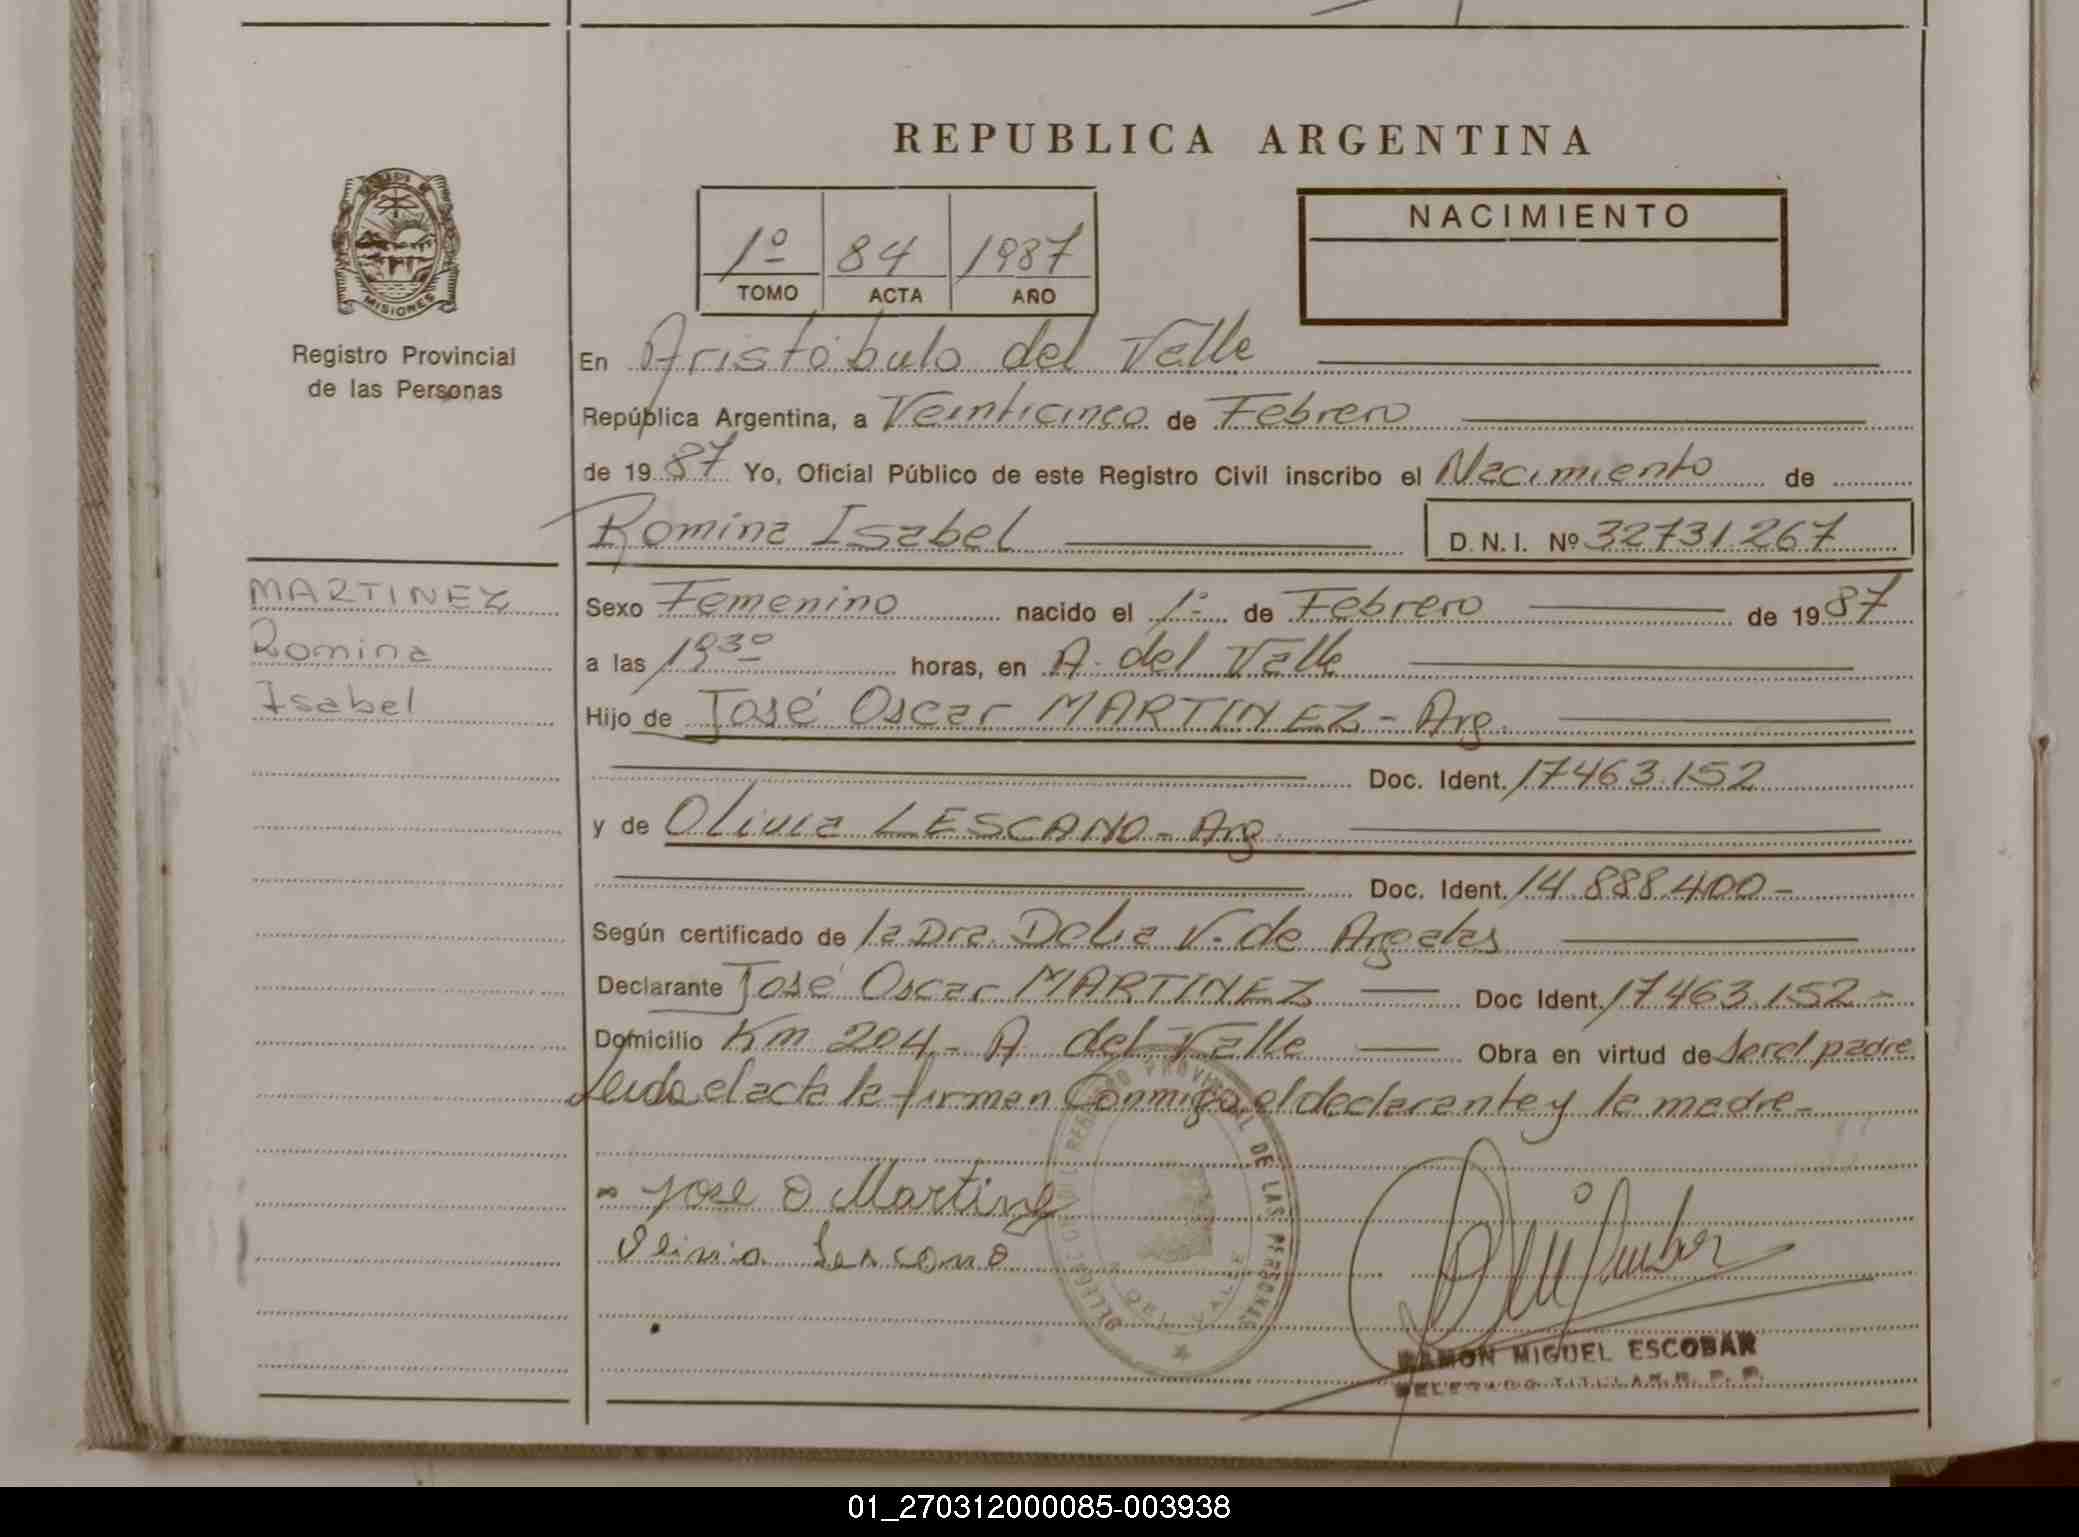 REPUBLICA ARGENTINA
MISIONES
Registro Provincial
de las Personas
1º 84 1987
TOMO ACTA AÑO
NACIMIENTO
En Aristóbulo del Valle
República Argentina, a Veinticinco de Febrero
de 1987 Yo, Oficial Público de este Registro Civil inscribo el Nacimiento de
Romina Isabel D.N.I. Nº 32731267
MARTINEZ
Romina
Isabel
Sexo Femenino nacido el 1º de Febrero de 1987
a las 19³⁰ horas, en A. del Valle
Hijo de José Oscar MARTINEZ - Arg.
Doc. Ident. 17463.152
y de Olivia LESCANO - Arg.
Doc. Ident. 14.888.400-
Según certificado de la Dra. Delia V. de
Declarante José Oscar MARTINEZ Doc Ident. 17463.152-
Domicilio Km 204 - A. del Valle Obra en virtud de ser el padre
Leida el acta la firman Conmigo, el declarante y la madre-
Jose O Martinez
Olivia Lescano
REGISTRO PROVINCIAL DE LAS PERSONAS
RAMON MIGUEL ESCOBAR
DELEGADO TITULAR R. P. P.
01_270312000085-003938